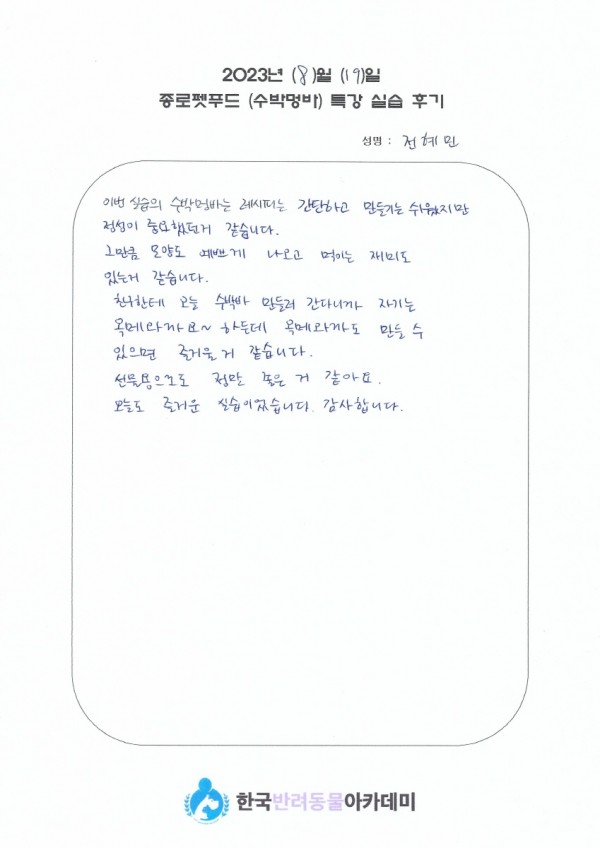 2023년 (8)월 (19)일
종로펫푸드 (수박멍바) 특강 실습 후기
성명 : 전혜민
이번 실습의 수박멍바는 레시피는 간단하고 만들기는 쉬웠지만
정성이 중요했던거 같습니다.
그만큼 모양도 예쁘게 나오고 먹이는 재미도
있는거 같습니다.
친구한테 오늘 수박바 만들러 간다니까 자기는
목메와까요~ 하든데 목메와까도 만들 수
있으면 즐거울거 같습니다.
선물용으로도 정말 좋은 거 같아요.
오늘도 즐거운 실습이었습니다. 감사합니다.
한국반려동물아카데미